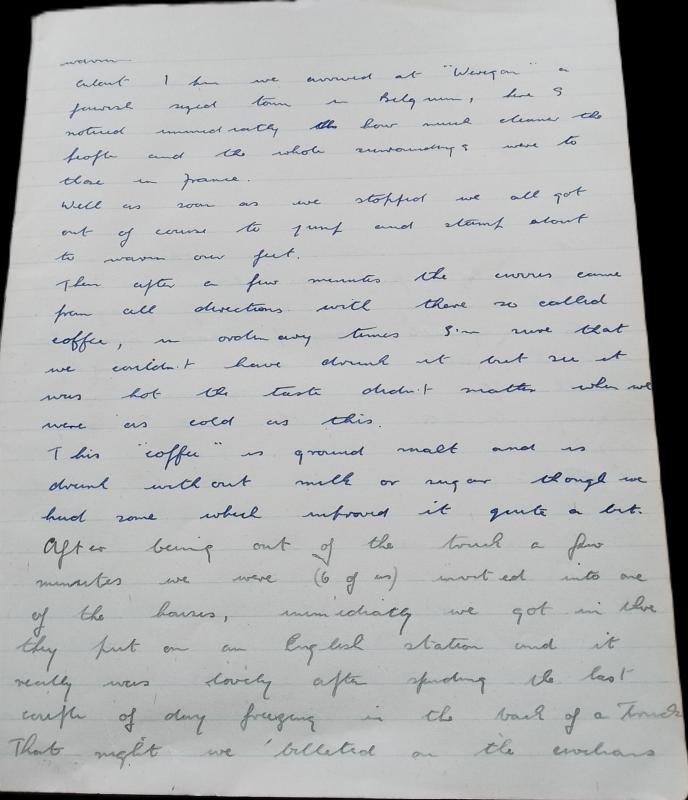 warm.
About 1 hr we arrived at "Weregan" a
fairish sized town in Belgium, here I
noticed immediatly the how much cleaner the
people and the whole surroundings were to
those in France.
Well as soon as we stopped we all got
out of course to jump and stamp about
to warm our feet.
Then after a few minutes the civvies came
from all directions with there so called
coffee, in ordinary times I'm sure that
we couldn't have drunk it but as it
was hot the taste didn't matter when we
were as cold as this.
This "coffee" is ground malt and is
drunk with out milk or sugar though we
had some which improved it quite a bit.
After being out of the truck a few
minutes we were (6 of us) invited into one
of the houses, immidiatly we got in there
they put on an English station and it
really was lovely after spending the last
couple of day freezing in the back of a Truck
That night we billeted on the civilians